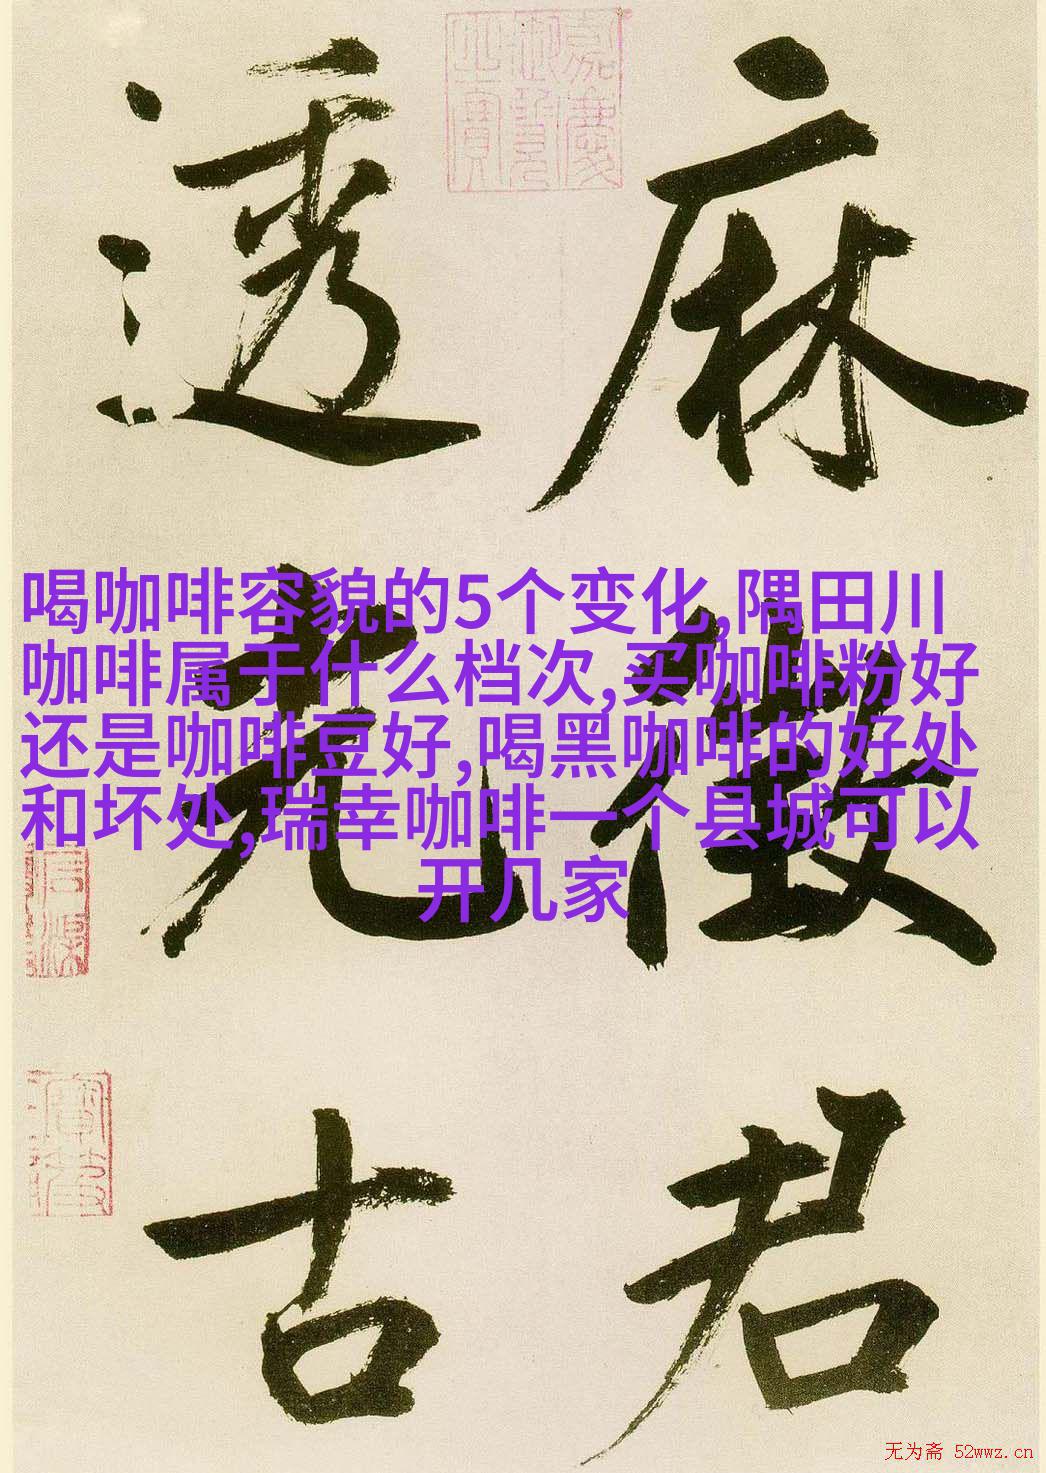 麻
徴
君
透
光
古
嘉慶
御覽
之寶
喝咖啡容貌的5个变化,隅田川
咖啡属于什么档次,买咖啡粉好
还是咖啡豆好,喝黑咖啡的好处
和坏处,瑞幸咖啡一个县城可以
开几家
无为斋 52wwz.cn